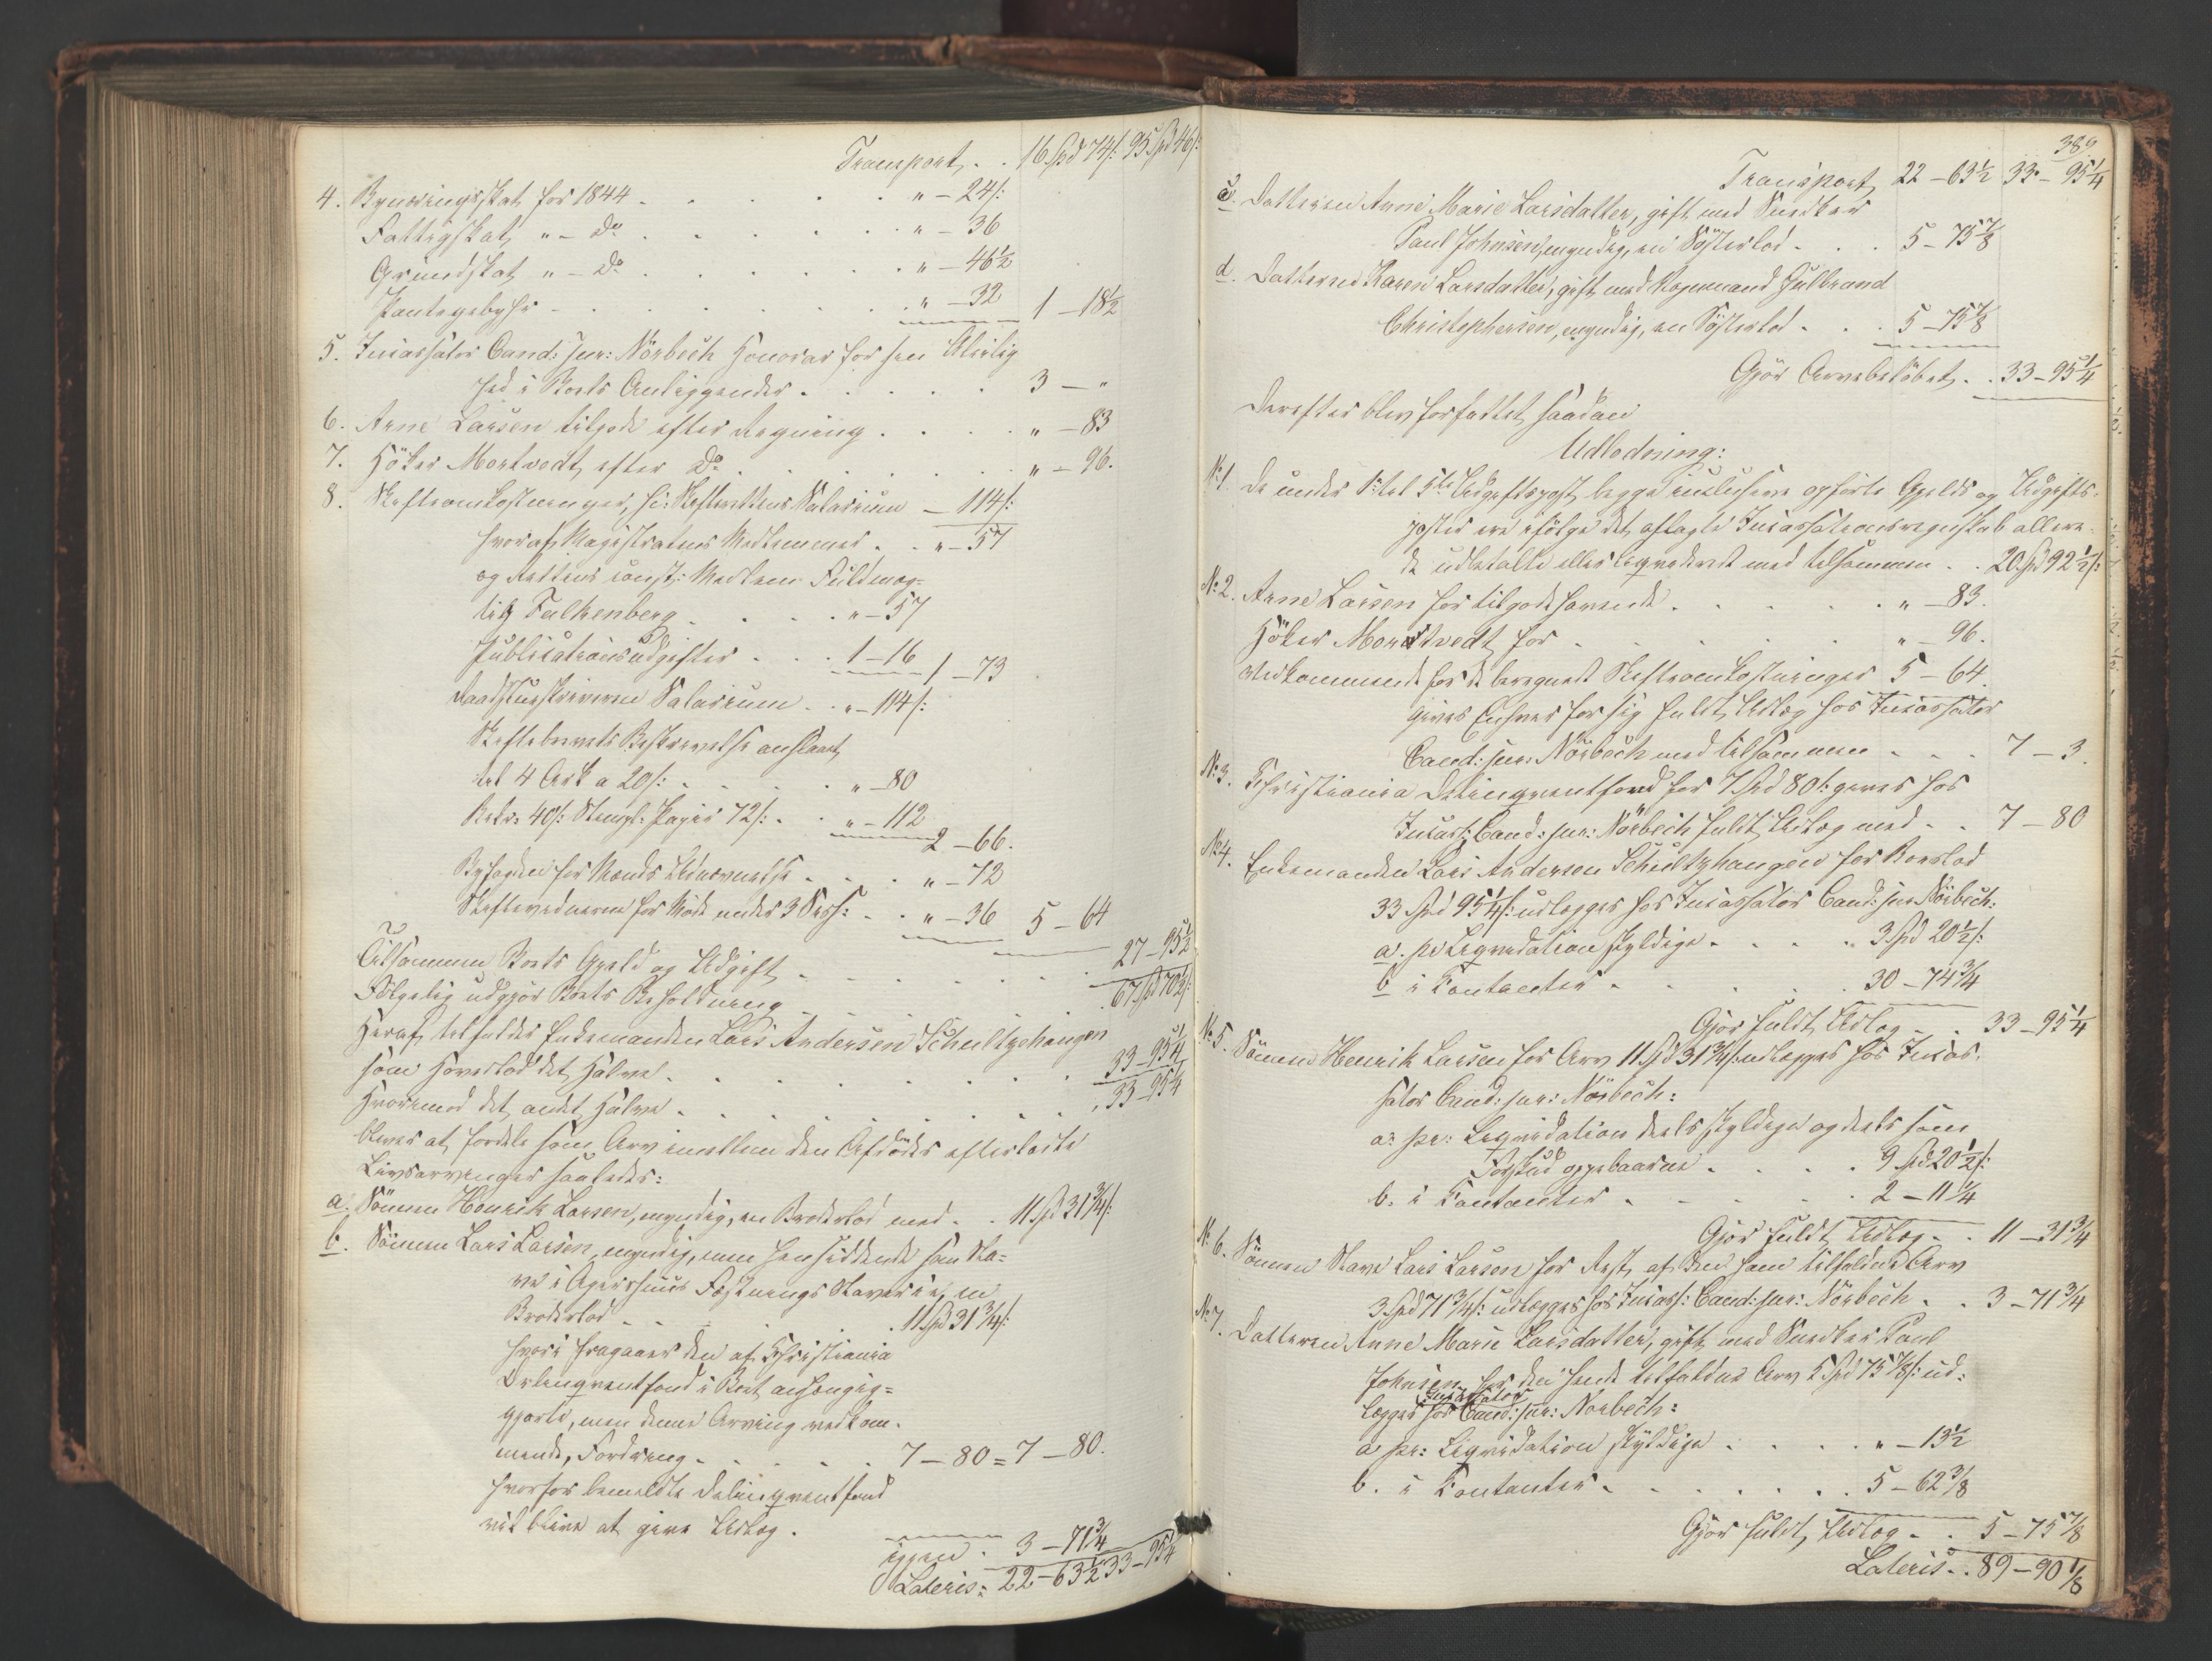 Transport . . 16 Spd 74 ß: 95 Spd 46 ß:
4. Bynæringsskat for 1844 . . . . . . " – 24 ß:
Fattigskat " – Do . . . . . . " – 36
Grundskat " – Do . . . . . . " – 46½
Pantegebyhr . . . . . . " – 32 1 – 18½
5. Incassator Cand: jur: Nörbech Honorar for hen
hed i Boets Anliggender . . . . . 3 – "
6. Arne Larsen tilgode efter Regning . . . . " – 83
7. Höker Mortvedt, efter Do . . . . . . " – 96.
8. Skifteomkostninger, f: Skifterettens Salarium – 114 ß:
hvoraf Magistratens Medlemmer . . " – 57
og Rettens const: Medlem Fuldmæg=
tig Falkenberg . . . . " – 57
Publicationsudgifter . . . 1 – 16 1 – 73
Raadstueskriveren Salarium . . " – 114 ß:
Skiftebrevets Beskrivelse anslaaet
til 4 Ark a 20 ß: . . . . . " – 80
Bekr: 40 ß: Stempl: Papir 72 ß: . . " – 112
2 – 66.
Byfogden for Mænds Udnævnelse . . . " – 72
Skiftevidnerne for Möde under 3 Sess: . . " – 36 5 – 64
Tilsammen Boets Gjeld og Udgift . . . . . . 27 – 95½
Fölgelig udgjör Boets Beholdning . . . . . 67 Spd 70½ ß:
Heraf tilfalder Enkemanden Lars Andersen Schultzehaugen
som Hovedlod det Halve . . . . . . . . . 33 – 95¼
Hvorimod det andet Halve . . . . . . . . . 33 – 95¼
bliver at fordele som Arv imellem den Afdödes efterladte
Livsarvinger saaledes:
a. Sönnen Henrik Larsen, myndig, en Broderlod med . . 11 Spd 31¾ ß:
b. Sönnen Lars Larsen, myndig, men hensiddende som Sla=
ve i Agershuus Fæstnings Slaverie, en
Broderlod . . . . . . . 11 Spd 31¾ ß:
hvori fragaaer den af Christiania
Delinqventfond i Boet anhængig=
gjorte, men denne Arving vedkom=
mende, Fordring . . . . . . 7 – 80 = 7 – 80.
hvorfor bemeldte Delinqventfond
vil blive at give Udlæg.
igjen . 3 – 71¾
Lateris: 22 – 63½ 33 – 95¼
389.
Transport 22 – 63½ 33 – 95¼
c. Datteren Anne Marie Larsdatter, gift med Snedker
Paul Johnsen, myndig, en Södsterlod . . . 5 – 75⅞
d. Datteren Karen Larsdatter, gift med Gulbrand
Christophersen, myndig, en Södsterlod . . . 5 – 75⅞
Gjör Arvebelöbet . . 33 – 95¼
Derefter blev forfattet saadan
Udlodning:
No 1. De under 1ste til 5te Udgiftspost begge inclusive opförte Gjelds og Udgifts=
poster ere ifölge det aflagte Incassationsregnskab allere=
de udbetalte eller liqviderede med tilsammen . . 20 Spd 92½ ß:
No 2. Arne Larsen for tilgodehavende . . . . . . " – 83.
Höker Mortvedt for . . . . . . " – 96.
Vedkommende for de beregnede Skifteomkostninger 5 – 64.
gives Enhver for sig fuldt Udlæg hos Incassator
Cand: jur: Nörbech med tilsammen . . . 7 – 3.
No 3. Christiania Delinqventfond for 7 Spd 80 ß: gives hos
Incass: Cand: jur: Nörbech fuldt Udlæg med . . 7 – 80
No 4. Enkemanden Lars Andersen Schultzhaugen for Boeslod
33 Spd 95¼ ß: udlægges hos Incassator Cand: jur Nörbech:
a. pr Liqvidation skyldige . . . . . 3 Spd 20½ ß:
b i Contanter . . . . . . 30 – 74¾
Gjör fuldt Udlæg . . 33 – 95¼
No 5. Sönnen Henrik Larsen for Arv 11 Spd 31¾ ß: udlægges hos Incas=
sator Cand: jur: Nörbech:
a: pr: Liqvidation deels skyldige og deels som
Forskud oppebaarne . . . . . 9 Spd 20½ ß:
b. i Contanter . . . . . 2 – 11¼
Gjör fuldt Udlæg . . 11 – 31¾
No 6. Sönnen Slave Lars Larsen for Rest af den ham tilfaldne Arv
3 Spd 71¾ ß: udlægges hos Incass: Cand: jur: Nörbech . . 3 – 71¾
No 7. Datteren Anne Marie Larsdatter, gift med Snedker Paul
Johnsen for den hende tilfaldne Arv 5 Spd 75⅞ ß: ud=
lægges hos Incassator Cand: jur: Norbech:
a pr: Liqvidation skyldige . . . . . " – 13½
b. i Contanter . . . . . . . 5 – 62⅜
Gjör fuldt Udlæg . . 5 – 75⅞
Lateris . . 89 – 90⅛